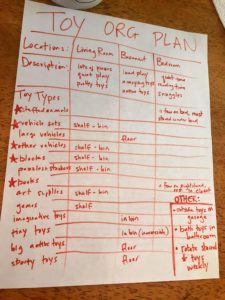 TOY ORG PLAN
Locations: Living Room Basement Bedroom
Description: lots of room quiet play pretty toys
loud play messy toys active toys
quiet time reading time snuggles
Toy Types
★ stuffed animals a few on bed, most stored under bed
★ vehicle sets shelf - bin
large vehicles floor
★ other vehicles shelf - bin
★ blocks shelf - bin
shelf - bin
★ books a few on
art supplies shelf - bin
games shelf
imaginative toys in bin
tiny toys in bin
big active toys floor
sporty toys floor
OTHER:
• outside toys in garage
• bath toys in bathroom
• rotate stored toys weekly